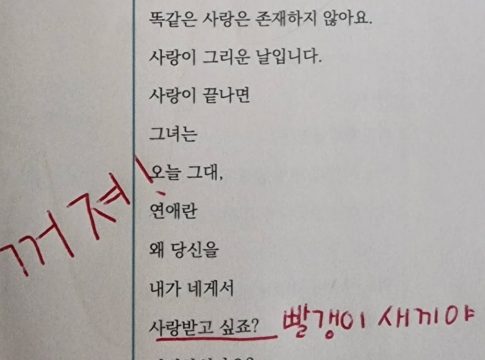 똑같은 사랑은 존재하지 않아요.
사랑이 그리운 날입니다.
사랑이 끝나면
그녀는
꺼져!
오늘 그대,
연애란
왜 당신을
내가 네게서
사랑받고 싶죠? 빨갱이 새끼야